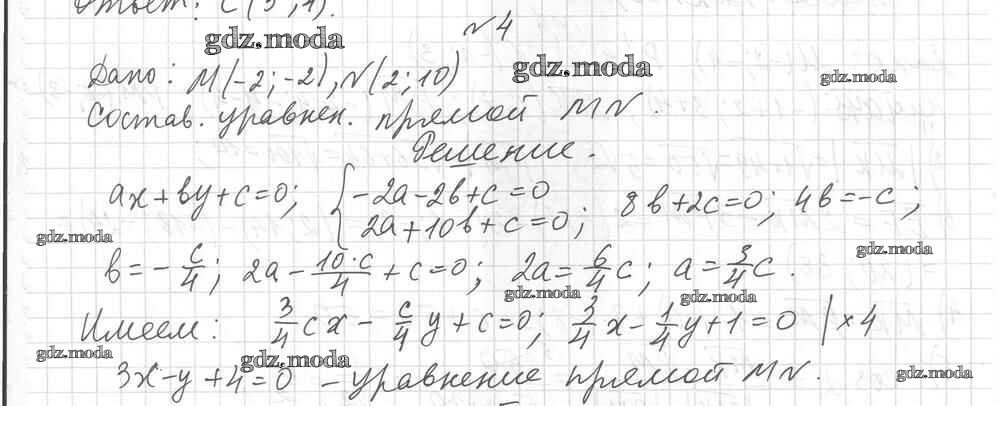 Ответ: C(3;1).
№4
gdz.moda
Дано: M(-2;-2), N(2;10)
gdz.moda
gdz.moda
Состав. уравнен. прямой MN.
Решение.
ax+by+c=0; {-2a-2b+c=0 2a+10b+c=0; 8b+2c=0; 4b=-c;
gdz.moda
gdz.moda
b=-c/4; 2a-10·c/4+c=0; 2a=6/4c; a=3/4c.
gdz.moda
gdz.moda
Имеем: 3/4cx-c/4y+c=0; 3/4x-1/4y+1=0 |×4
gdz.moda
gdz.moda
3x-y+4=0 - уравнение прямой MN.
gdz.moda